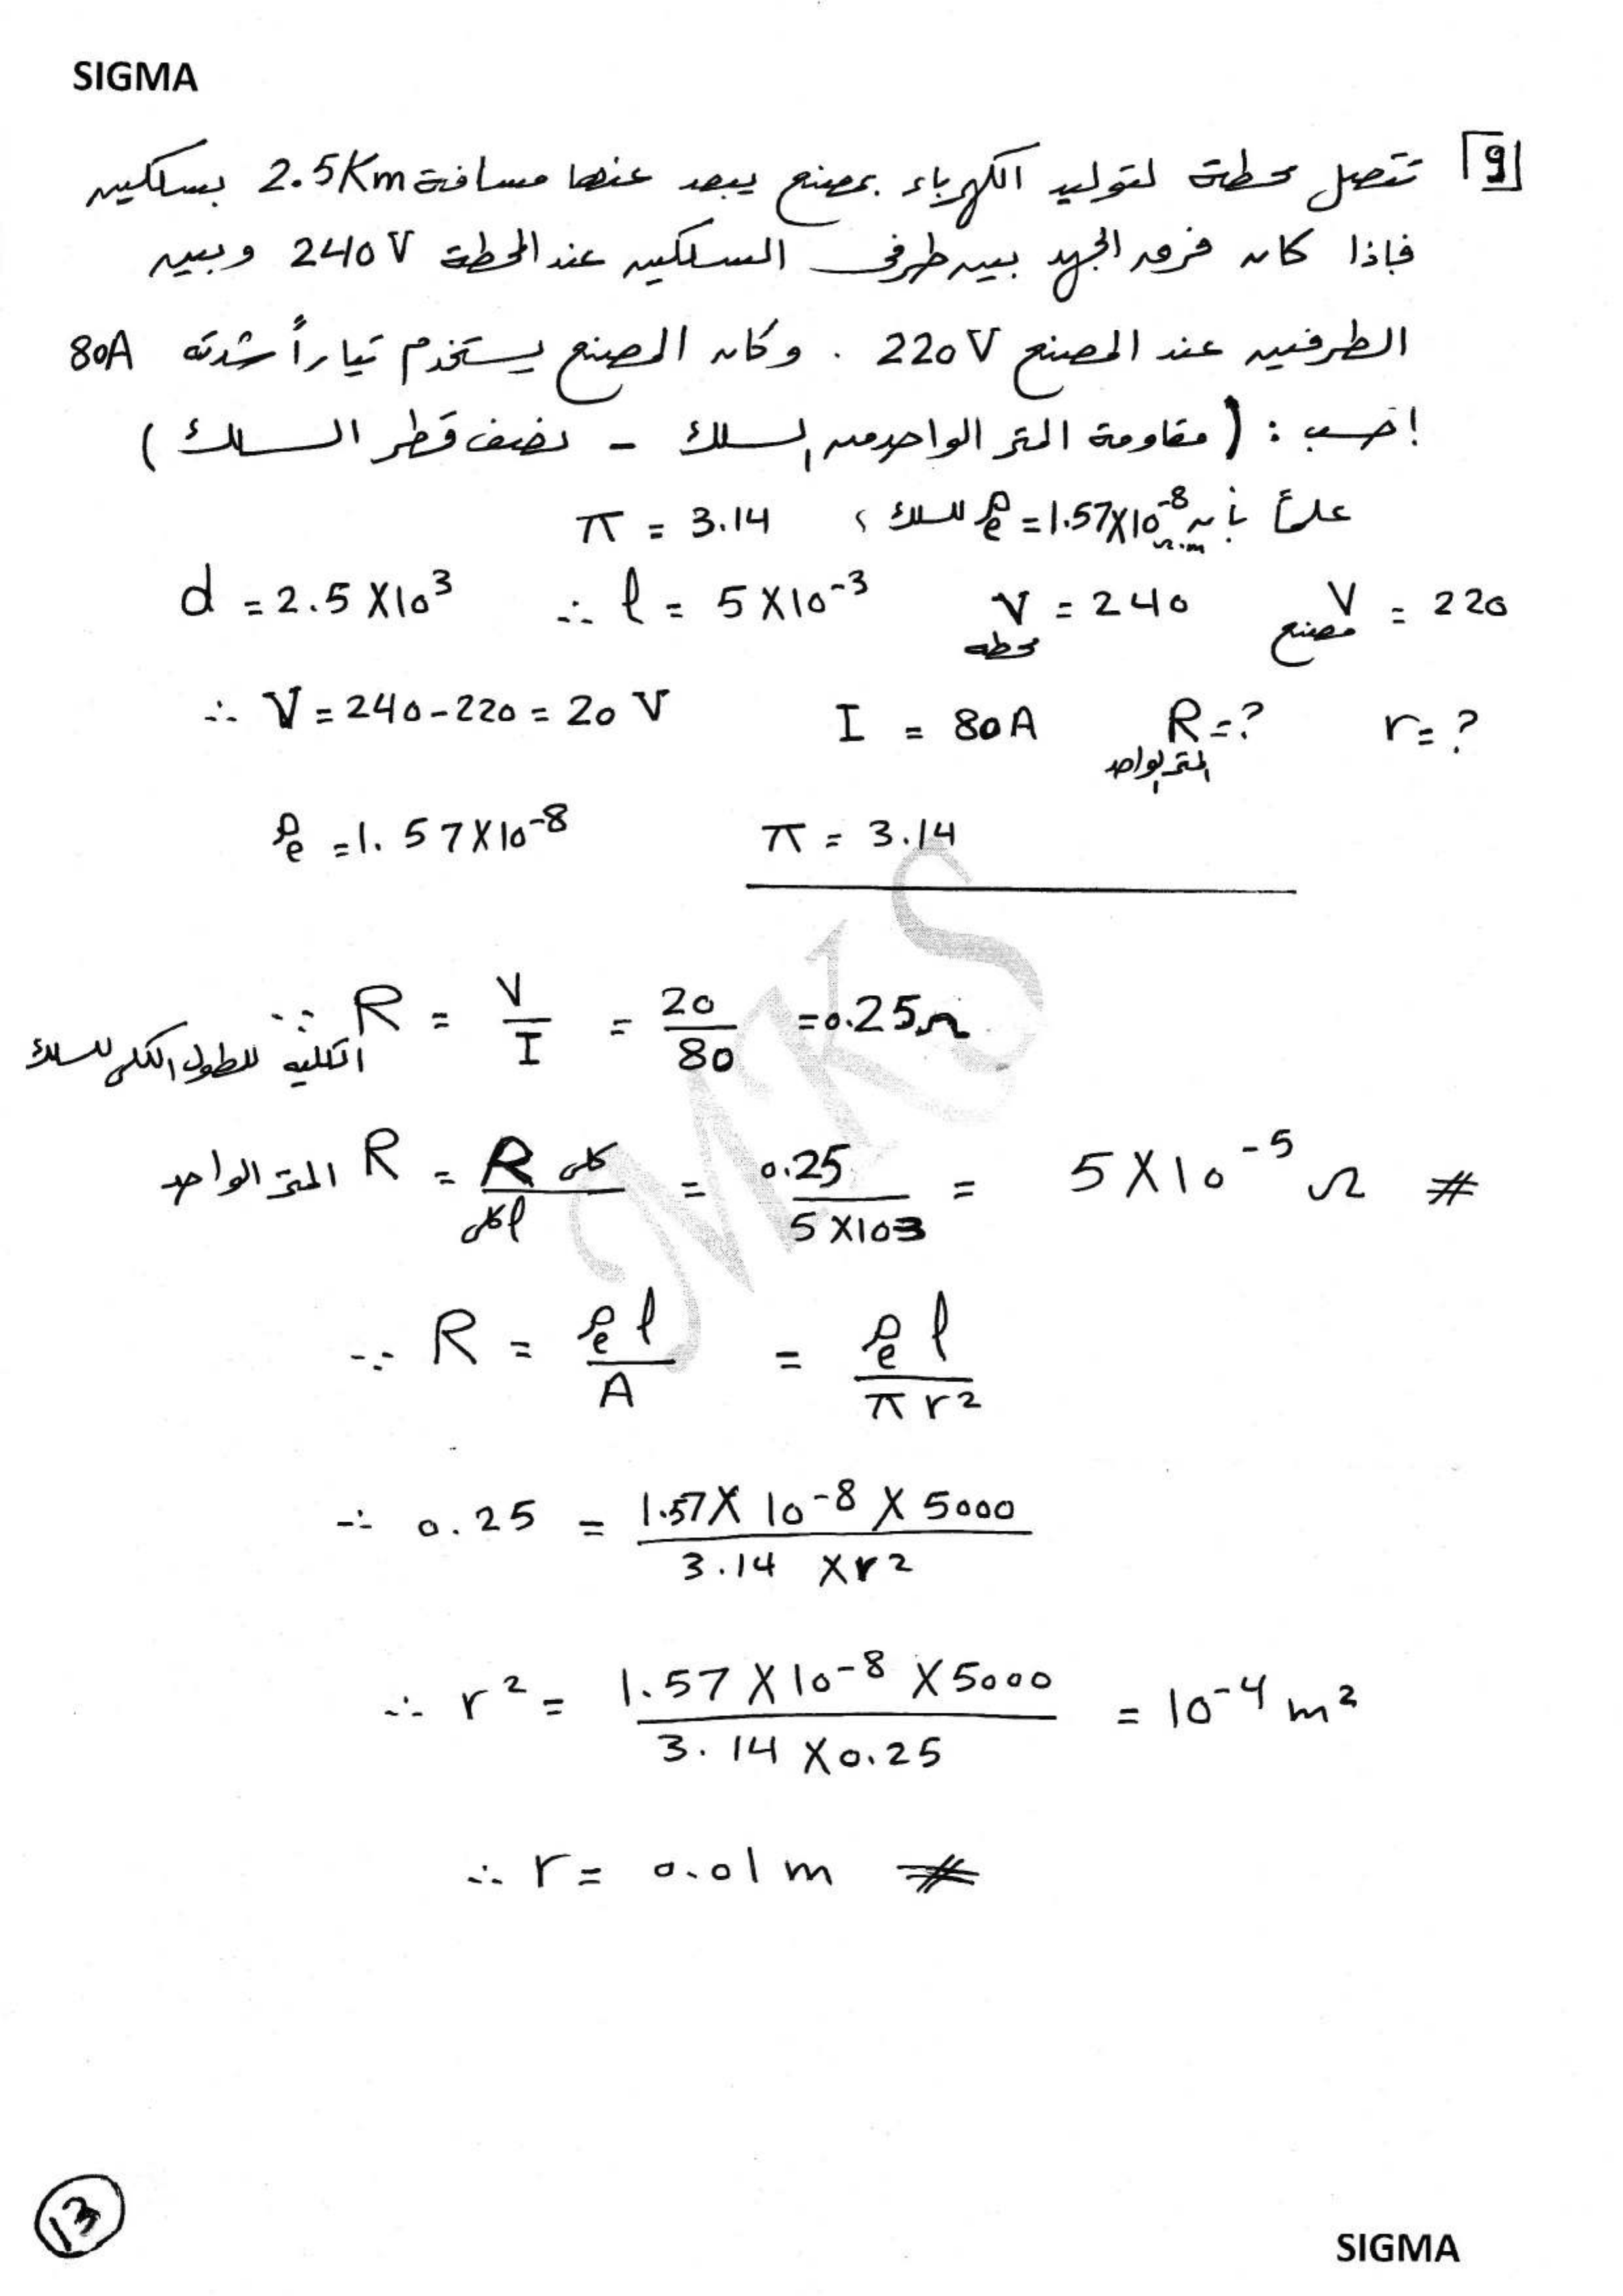 SIGMA
[9] تتصل محطة لتوليد الكهرباء بمصنع يبعد عنها مسافة 2.5Km بسلكين
فإذا كان فرق الجهد بين طرفى السلكين عند المحطة 240V وبين
الطرفين عند المصنع 220V . وكان المصنع يستخدم تياراً شدته 80A
احسب : ( مقاومة المتر الواحد من السلك - نصف قطر السلك )
علماً بأن ρe = 1.57X10^-8 Ω.m للسلك ، π = 3.14
d = 2.5 X10^3 ∴ l = 5 X10^-3 V محطه = 240 V مصنع = 220
∴ V = 240-220 = 20 V I = 80A R المتر الواحد = ? r = ?
ρe = 1.57X10^-8 π = 3.14
MKS
∵ R الكليه للطول الكلى للسلك = V/I = 20/80 = 0.25Ω
R المتر الواحد = R كلى / l كلى = 0.25 / 5 X103 = 5 X10^-5 Ω #
∵ R = ρe l / A = ρe l / π r^2
∴ 0.25 = 1.57X 10^-8 X 5000 / 3.14 X r^2
∴ r^2 = 1.57 X10^-8 X5000 / 3.14 X0.25 = 10^-4 m^2
∴ r = 0.01 m #
13
SIGMA